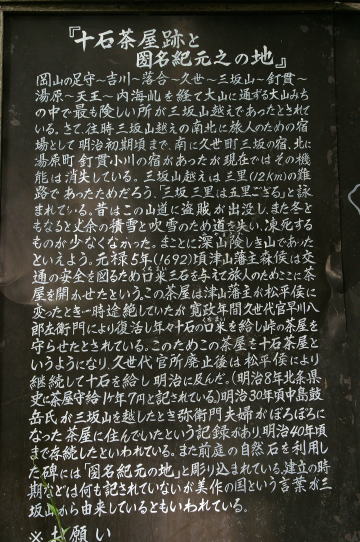 『十石茶屋跡と
圀名紀元之の地』
岡山の足守〜吉川〜落合〜久世〜三坂山〜釘貫〜
湯原〜天王〜内海乢を経て大山に通ずる大山みち
の中で最も険しい所が三坂山越えであったとされ
ている。さて、往時三坂山越えの南北に旅人のための宿
場として明治初期頃まで、南に久世町三坂の宿、北に
湯原町釘貫小川の宿があったが現在ではその機
能は消失している。三坂山越えは三里(12km)の難
路であったためだろう、「三坂三里は五里ござる」と詠
まれている。昔はこの山道に盗賊が出没し、また冬と
もなると丈余の積雪と吹雪のため道を失い、凍死する
ものが少なくなかった。まことに深山険しき山であった
といえよう。元禄5年(1692)頃津山藩主森侯は交
通の安全を図るため口米三石を与えて旅人のためここに茶
屋を開かせたという。この茶屋は津山藩主が松平侯に
変ったとき一時途絶していたが寛政年間久世代官早川八
郎左衛門により復活し年々十石の口米を給し峠の茶屋を
守らせたとされている。このためこの茶屋を十石茶屋と
いうようになり、久世代官所廃止後は松平侯により
継続して十石を給し明治に及んだ。(明治8年北条県
史に茶屋守給1ケ年7円と記されている)明治30年頃中島鼓
岳氏が三坂山を越したとき弥衛門夫婦がぼろぼろに
なった茶屋に住んでいたという記録があり、明治40年頃
まで存続したといわれている。また前庭の自然石を利用し
た碑には「圀名紀元の地」と彫り込まれている。建立の時
期などは何も記されていないが美作の国という言葉が三
坂山から由来しているともいわれている。
※お願い